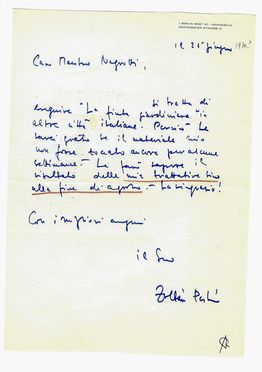 1 BERLIN WEST 10 - GRUNEWALD
il 21 giugno 1970?
Caro Maestro Negrotti,
Si tratta di
eseguire "La finta giardiniera" in
altre città italiane. Perciò Le
sarei grato se il materiale mio
non fosse toccato ancora per alcune
settimane. Le farò sapere il
risultato delle mie trattative sino
alla fine di agosto. - La ringrazio!
Con i migliori auguri
il Suo
Zoltán